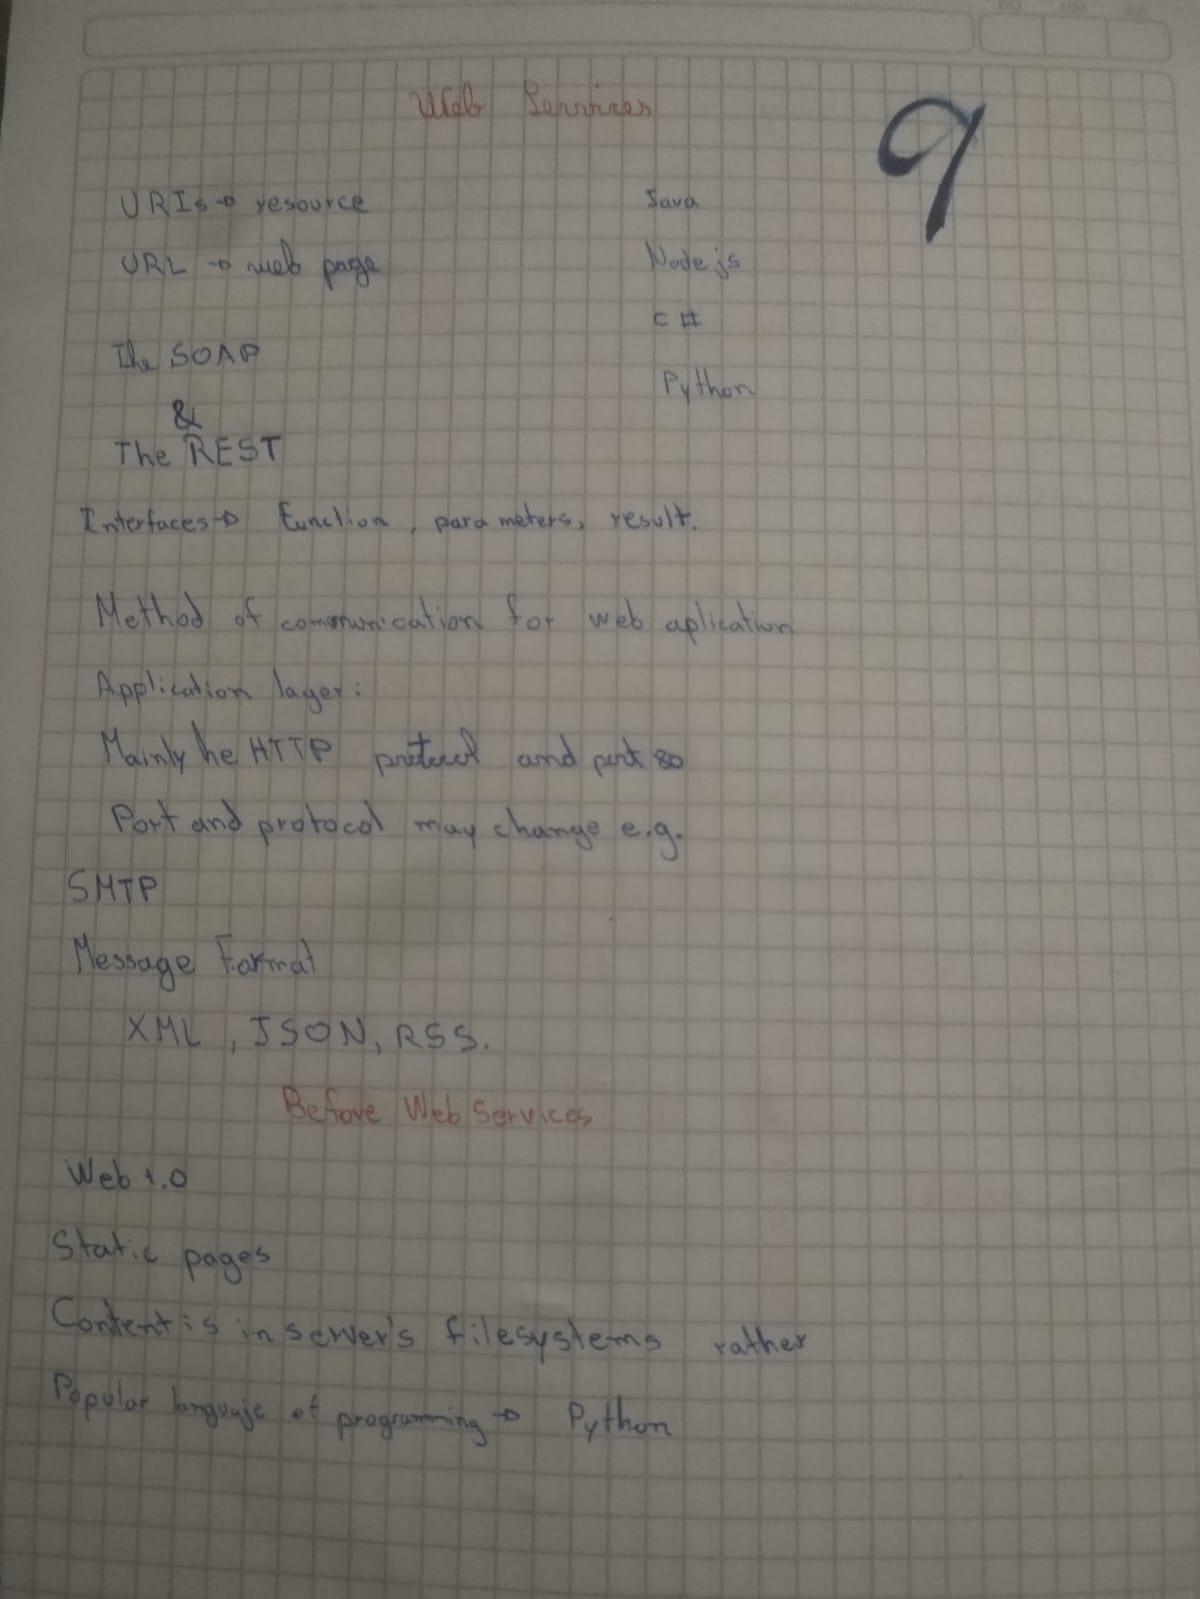 Web Services
9
URIs → resource
URL → web page
Java
Node js
C#
Python
The SOAP
&
The REST
Interfaces → Function, parameters, result.
Method of communication for web aplication
Application layer:
Mainly he HTTP protocol and port 80
Port and protocol may change e.g.
SMTP
Message Format
XML, JSON, RSS.
Before Web Services
Web 1.0
Static pages
Content is in server's filesystems rather
Popular languaje of programming → Python